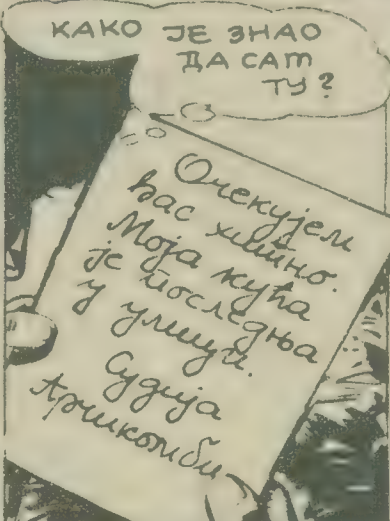 КАКО ЈЕ ЗНАО
ДА САМ
ТУ?
Очекујем
вас хитно.
Моја кућа
је последња
у улици.
Судија
Аршкомби